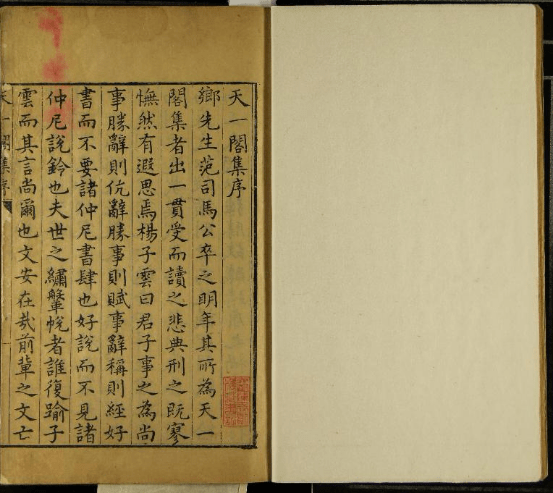 天一閣集序
鄉先生范司馬公卒之明年其所為天一
閣集者出一貫受而讀之悲典刑之既寥
憮然有遐思焉楊子雲曰君子事之為尚
事勝辭則伉辭勝事則賦事辭稱則經好
書而不要諸仲尼書肆也好說而不見諸
仲尼說鈴也夫世之繡鞶帨者誰復踰子
雲而其言尚爾也文安在哉前輩之文亡
天一閣集序